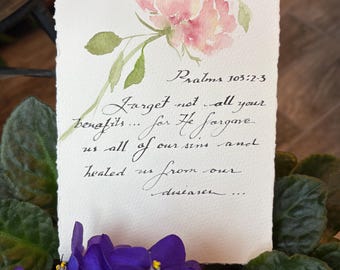 Psalms 103:2-3
Forget not all your
benefits... for He forgave
us all of our sins and
healed us from our
diseases...